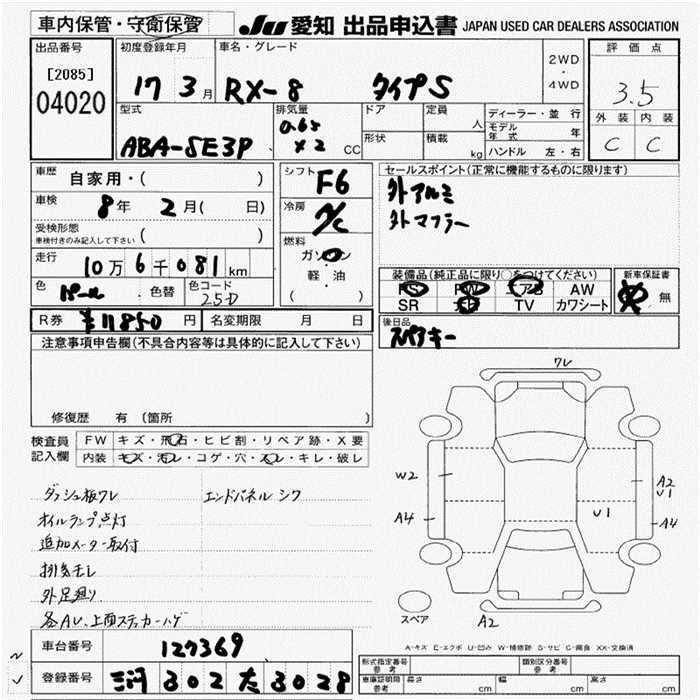 車内保管・守衛保管
JU 愛知 出品申込書 JAPAN USED CAR DEALERS ASSOCIATION
出品番号
[2085]
04020
初度登録年月
17 3月
車名・グレード
RX-8 タイプS
2WD
・
4WD
評価点
3.5
外装 内装
C C
型式
ABA-SE3P
排気量
0.65
×2 CC
ドア
形状
定員
人
積載
kg
ディーラー・並行
モデル年 年
ハンドル 左・右
車歴
自家用・( )
車検
8年 2月( 日)
受検形態
車検付きのみ記入して下さい ( )
走行
10万 6千 081 km
色
パール 色替
色コード
25D
シフト
F6
冷房
A/C
燃料
ガソリン
軽・油
( )
セールスポイント(正常に機能するものに限ります)
外アルミ
外マフラー
装備品(純正品に限り○をつけてください)
PS PW AW
SR ナビ TV カワシート
新車保証書
有 無
R券 ¥11850 円 名変期限 月 日
後日品
スペアキー
注意事項申告欄(不具合内容等は具体的に記入して下さい)
修復歴 有 (箇所
検査員
記入欄
FW キズ・飛石・ヒビ割・リペア跡・X要
内装 キズ・汚レ・コゲ・穴・スレ・キレ・破レ
ダッシュ板ワレ エンドパネルシワ
オイルランプ点灯
追加メーター取付
排気モレ
外足廻り
各AU、上面ステッカーハゲ
ワレ
W2
A4
U1
A2
U1
A4
スペア
A2
A-キズ E-エクボ U-凹み W-補修跡 S-サビ C-腐食 XX-交換済
車台番号 127369
登録番号 三河 302 た 3028
形式指定番号
参考
類別区分番号
参考
車庫証明関
参考
長さ cm 幅 cm 高さ cm